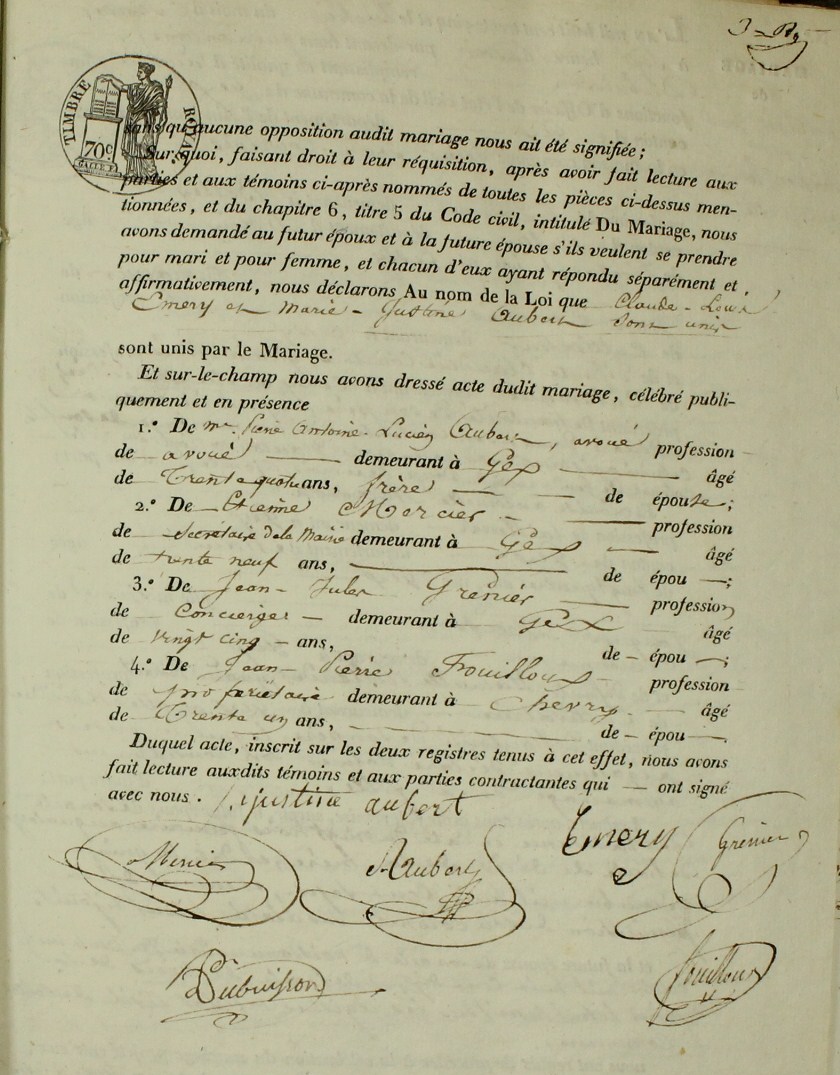 TIMBRE ROYAL
70c
sans qu'aucune opposition audit mariage nous ait été signifiée ;
Sur quoi, faisant droit à leur réquisition, après avoir fait lecture aux
parties et aux témoins ci-après nommés de toutes les pièces ci-dessus men-
tionnées, et du chapitre 6, titre 5 du Code civil, intitulé Du Mariage, nous
avons demandé au futur époux et à la future épouse s'ils veulent se prendre
pour mari et pour femme, et chacun d'eux ayant répondu séparément et
affirmativement, nous déclarons Au nom de la Loi que Claude-Louis
Emery et Marie-Justine Aubert sont unis
sont unis par le Mariage.
Et sur-le-champ nous avons dressé acte dudit mariage, célébré publi-
quement et en présence
1.° De Mr. Pierre Antoine-Lucien Aubert, avoué profession
de avoué demeurant à Gex âgé
de Trente quatre ans, frère de épouse ;
2.° De Etienne Mercier profession
de Secrétaire de la Mairie demeurant à Gex âgé
de trente neuf ans, de épou — ;
3.° De Jean-Jules Grenier profession
de Concierge — demeurant à Gex âgé
de vingt cinq — ans, de — épou — ;
4.° De Jean-Pierre Fouilloux profession
de propriétaire demeurant à Chevry âgé
de Trente un ans, de — épou — .
Duquel acte, inscrit sur les deux registres tenus à cet effet, nous avons
fait lecture auxdits témoins et aux parties contractantes qui — ont signé
avec nous . justine aubert
Emery Grenier
Mercier Aubert
Dubuisson Fouilloux